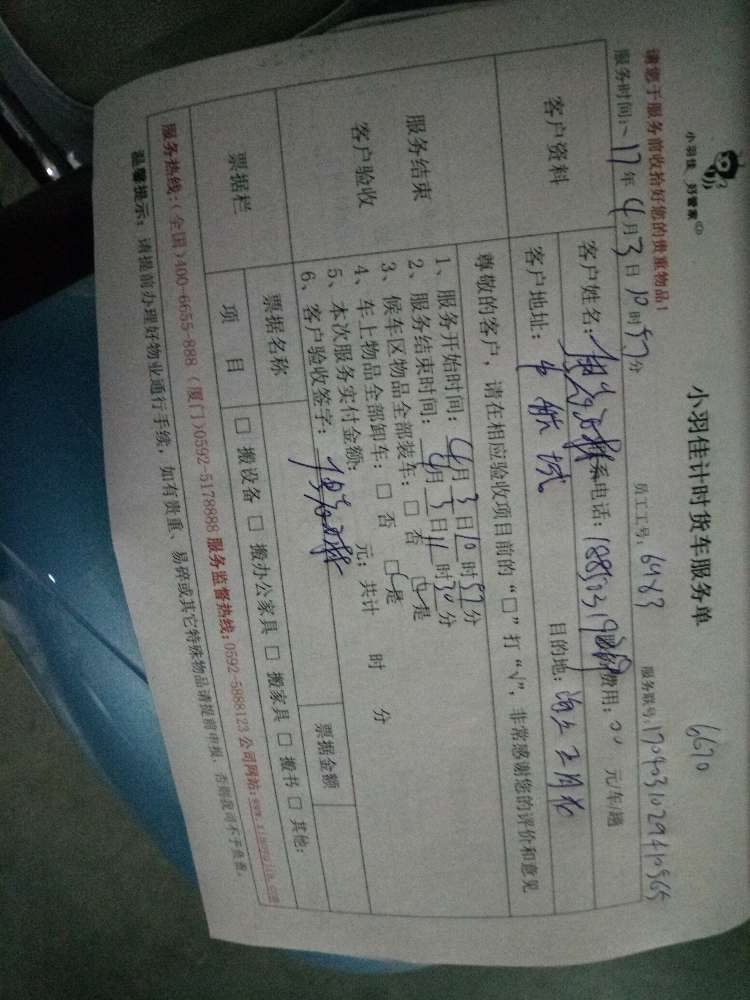 小羽佳 好管家
小羽佳计时货车服务单
6670
请您于服务前收拾好您的贵重物品！
员工工号：6483
服务联号：
服务时间：17年4月3日10时57分
客户资料
客户姓名：
联系电话：
费用：
元/车/趟
客户地址：中航城
目的地：海上五月花
服务结束
客户验收
尊敬的客户，请在相应验收项目前的“□”打“√”，非常感谢您的评价和意见
1、服务开始时间：4月3日10时57分
2、服务结束时间：4月3日11时50分
3、候车区物品全部装车：□ 否 □ 是
4、车上物品全部卸车：□ 否 □ 是
5、本次服务实付金额： 元；共计 时 分
6、客户验收签字：
票据栏
票据名称
票据金额
项 目
□ 搬设备 □ 搬办公家具 □ 搬家具 □ 搬书 □ 其他：
服务热线：（全国）400-6655-888（厦门）0592-5178888 服务监督热线：0592-5888123 公司网站：www.xiaoyujia.com
温馨提示：请提前办理好物业通行手续，如有贵重、易碎或其它特殊物品请提前申报，否则我司不予负责。